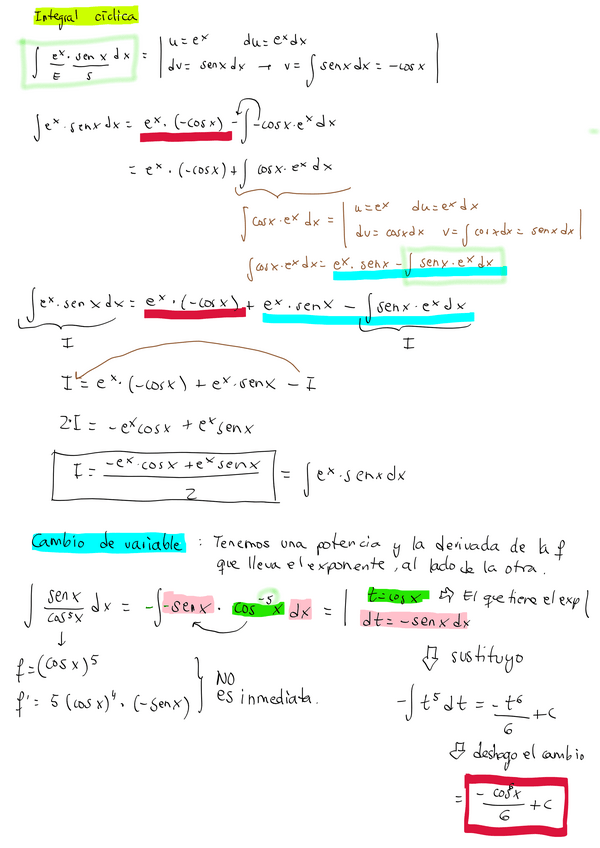 Integral cíclica
∫ e^x · sen x dx = | u = e^x du = e^x dx
E S dv = sen x dx → v = ∫ sen x dx = -cos x |
∫ e^x · sen x dx = e^x · (-cos x) - ∫ -cos x · e^x dx
= e^x · (-cos x) + ∫ cos x · e^x dx
∫ cos x · e^x dx = | u = e^x du = e^x dx
dv = cos x dx v = ∫ cos x dx = sen x dx |
∫ cos x · e^x dx = e^x · sen x - ∫ sen x · e^x dx
∫ e^x · sen x dx = e^x · (-cos x) + e^x · sen x - ∫ sen x · e^x dx
I I
I = e^x · (-cos x) + e^x · sen x - I
2·I = -e^x cos x + e^x sen x
I = (-e^x · cos x + e^x sen x) / 2 = ∫ e^x · sen x dx
Cambio de variable : Tenemos una potencia y la derivada de la f
que lleva el exponente, al lado de la otra.
∫ sen x / cos^5 x dx = -∫ -sen x · cos^-5 x dx = | t = cos x ⇨ El que tiene el exp |
dt = -sen x dx
⇩ sustituyo
f = (cos x)^5
f' = 5 (cos x)^4 · (-sen x)
NO
es inmediata.
-∫ t^5 dt = -t^6 / 6 + C
⇩ deshago el cambio
= -cos^6 x / 6 + C